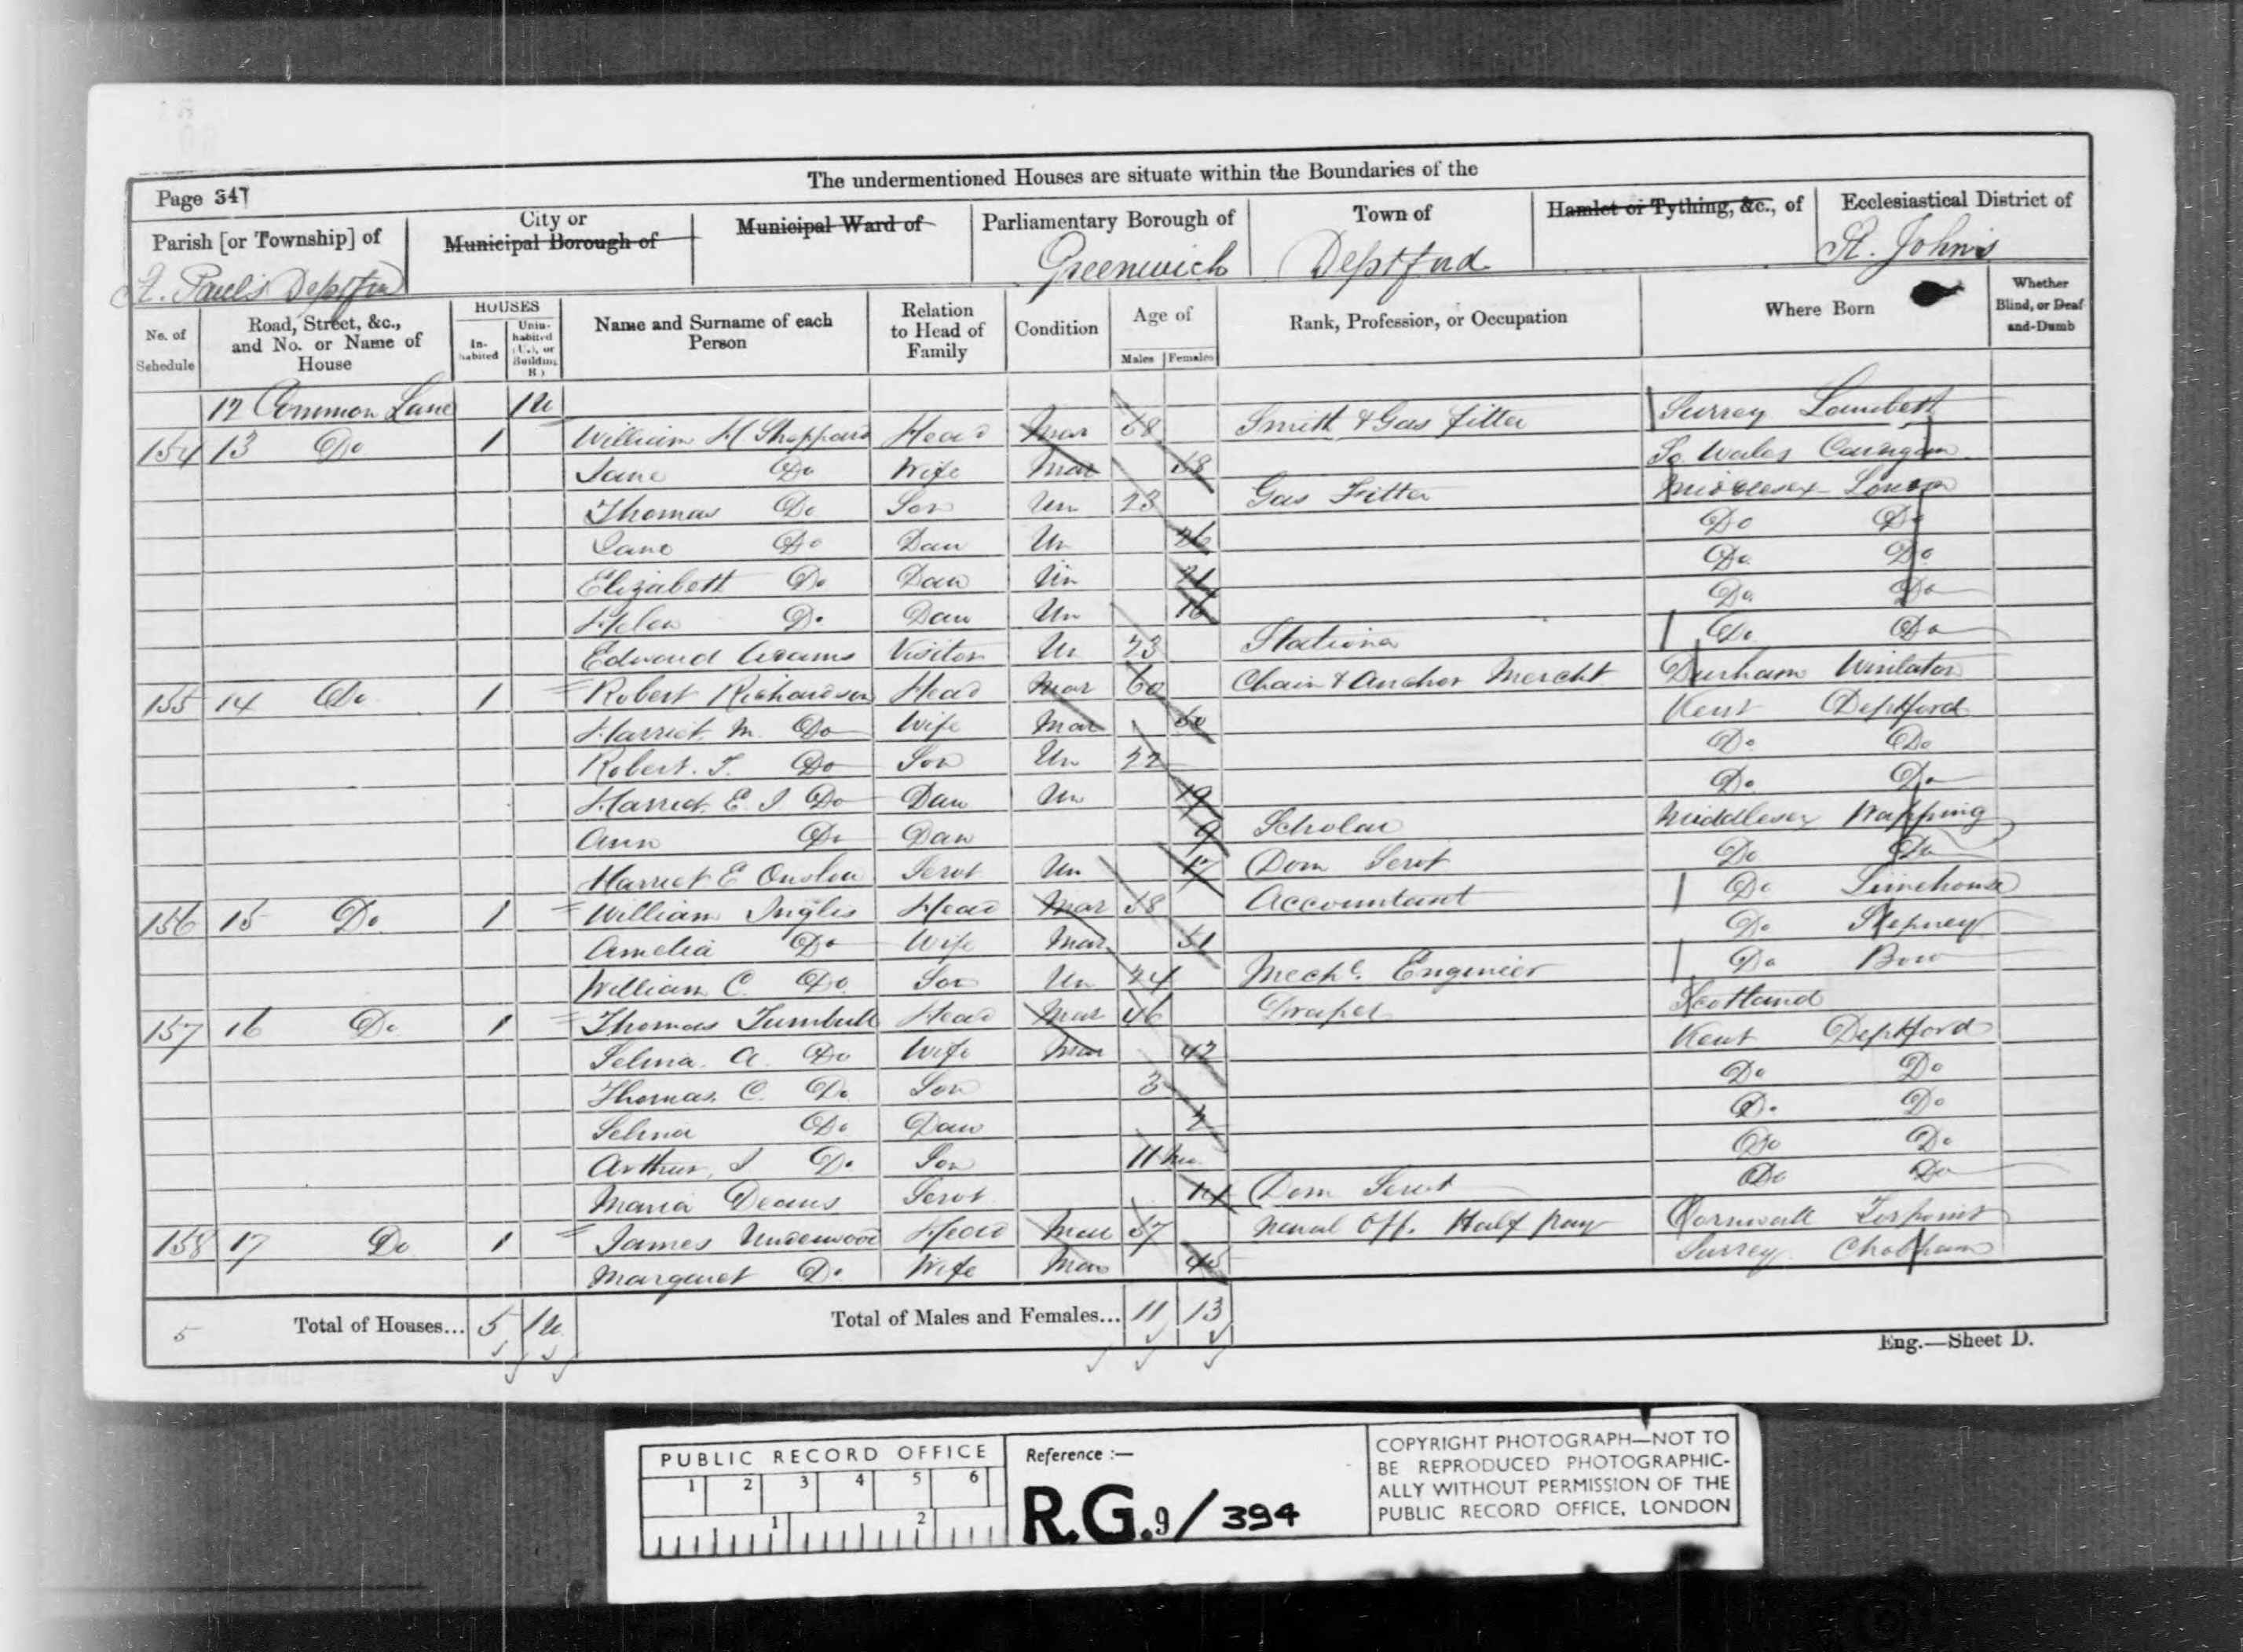 The undermentioned Houses are situate within the Boundaries of the
Page 347
Parish [or Township] of
St. Paul's Deptford
City or
Municipal Borough of
Municipal Ward of
Parliamentary Borough of
Greenwich
Town of
Deptford
Hamlet or Tything, &c., of
Ecclesiastical District of
St. John's
No. of Schedule
Road, Street, &c., and No. or Name of House
HOUSES
Inhabited
Uninhabited (U.), or Building (B.)
Name and Surname of each Person
Relation to Head of Family
Condition
Age of
Males Females
Rank, Profession, or Occupation
Where Born
Whether Blind, or Deaf-and-Dumb
12 Common Lane 1U
154 13 Do 1 William H Sheppard Head Mar 68 Smith & Gas fitter Surrey Lambeth
Jane Do Wife Mar 58 So. Wales Cardigan
Thomas Do Son Un 23 Gas Fitter Middlesex London
Jane Do Dau Un 26 Do Do
Elizabeth Do Dau Un 21 Do Do
Helen Do Dau Un 16 Do Do
Edward Adams Visitor Un 23 Stationer Do Do
155 14 Do 1 Robert Richardson Head Mar 60 Chain & Anchor Mercht Durham Winlaton
Harriet M. Do Wife Mar 50 Kent Deptford
Robert. T. Do Son Un 22 Do Do
Harriet E. J Do Dau Un 19 Do Do
Ann Do Dau 9 Scholar Middlesex Wapping
Harriet E Onslow Servt Un 17 Dom Servt Do Do
156 15 Do 1 William Inglis Head Mar 58 Accountant Do Limehouse
Amelia Do Wife Mar 51 Do Stepney
William C. Do Son Un 24 Mechl. Engineer Do Bow
157 16 Do 1 Thomas Turnbull Head Mar 46 Draper Scotland
Selina. A. Do Wife Mar 42 Kent Deptford
Thomas. C. Do Son 3 Do Do
Selina Do Dau 2 Do Do
Arthur. J Do Son 11 mo Do Do
Maria Deans Servt 14 Dom Servt Do Do
158 17 Do 1 James Underwood Head Mar 57 Naval Off. Half Pay Cornwall Torpoint
Margaret Do Wife Mar 45 Surrey Chobham
5 Total of Houses... 5 1U Total of Males and Females... 11 13
Eng.—Sheet D.
PUBLIC RECORD OFFICE
1 2 3 4 5 6
1 2
Reference :—
R.G. 9/394
COPYRIGHT PHOTOGRAPH—NOT TO
BE REPRODUCED PHOTOGRAPHIC-
ALLY WITHOUT PERMISSION OF THE
PUBLIC RECORD OFFICE, LONDON